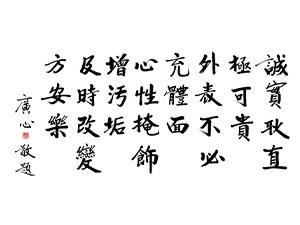 誠實耿直
極可貴
外表不必
充體面
心性掩飾
增污垢
及時改變
方安樂
廣心敬題